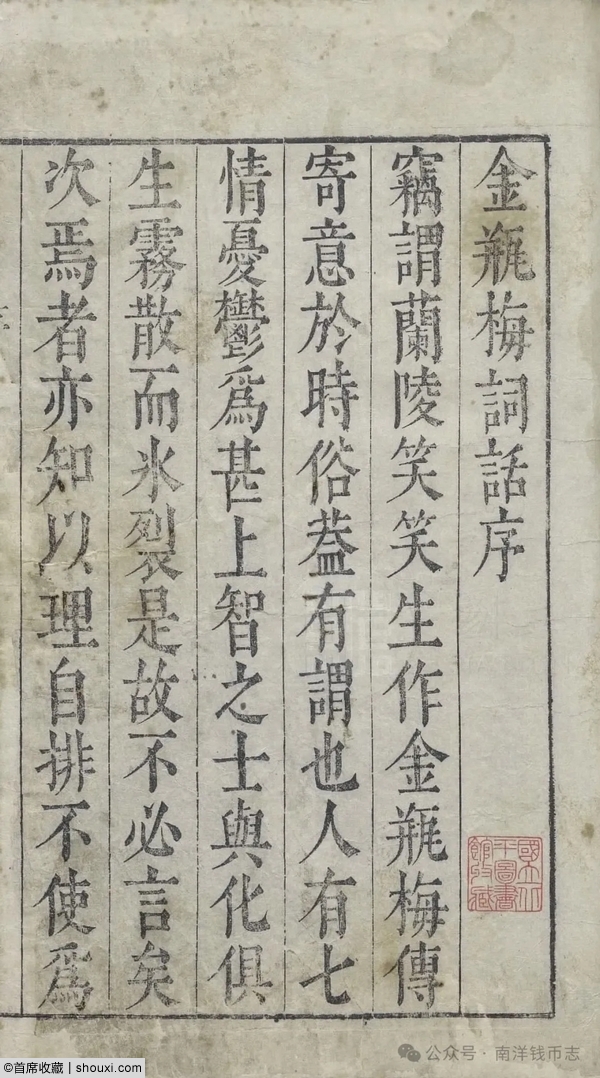 金瓶梅詞話序
竊謂蘭陵笑笑生作金瓶梅傳
寄意於時俗葢有謂也人有七
情憂鬱爲甚上智之士與化俱
生霧散而氷裂是故不必言矣
次焉者亦知以理自排不使爲
國立北
平圖書
館收藏
公众号 · 南洋钱币志
@首席收藏 | shouxi.com